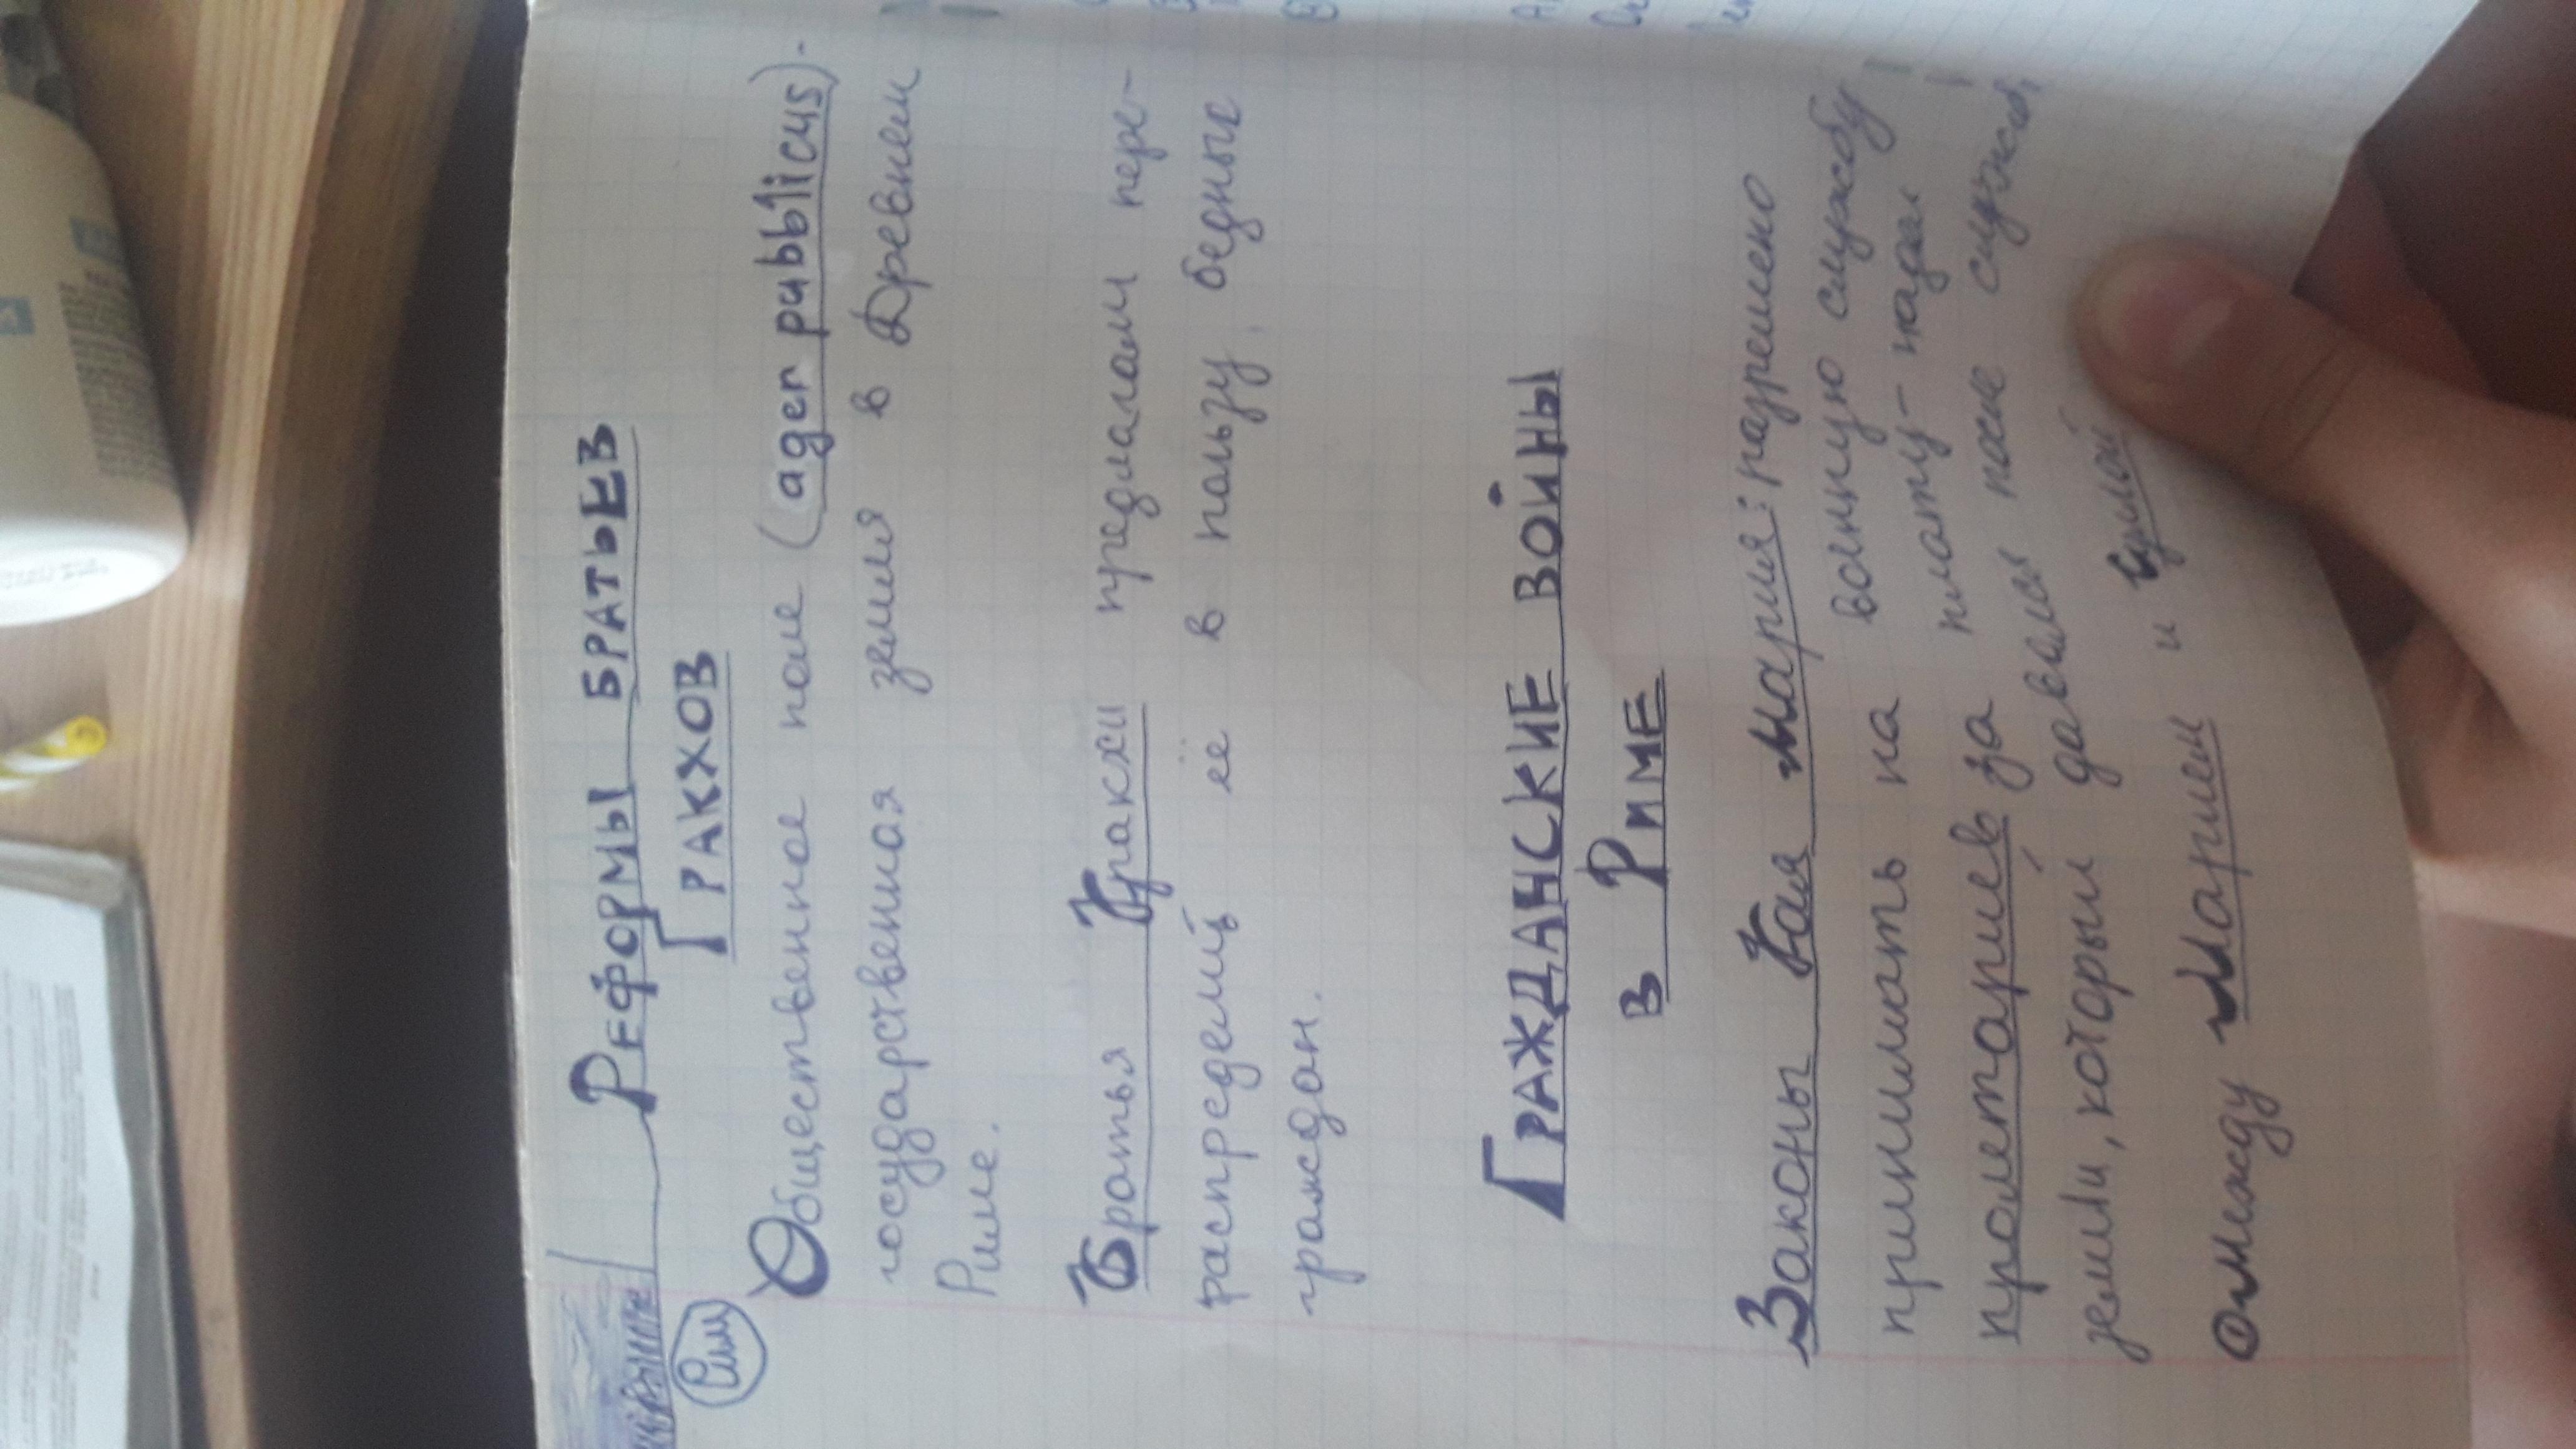 Реформы братьев
Гракхов
Рим
Общественное поле (ager pubblicus).
государственная земля в Древнем
Риме.
Братья Гракхи предлагали пере-
распределить её в пользу бедных
граждан.
Гражданские войны
в Риме
Законы Гая Мария: разрешено
принимать на военную службу
пролетариев за плату - надел
земли, который давался после службы,
между Марием и Суллой